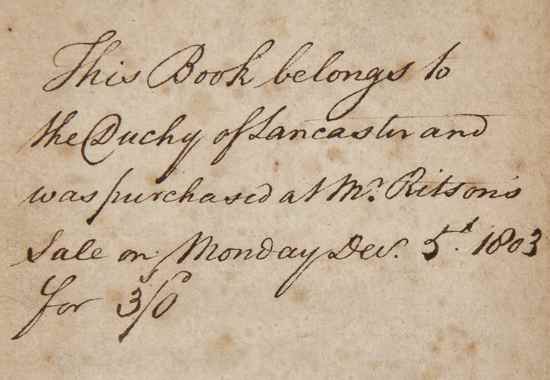 This Book belongs to
the Duchy of Lancaster and
was purchased at Mr. Ritson's
Sale on Monday Dec. 5d. 1803
for 3s/0d